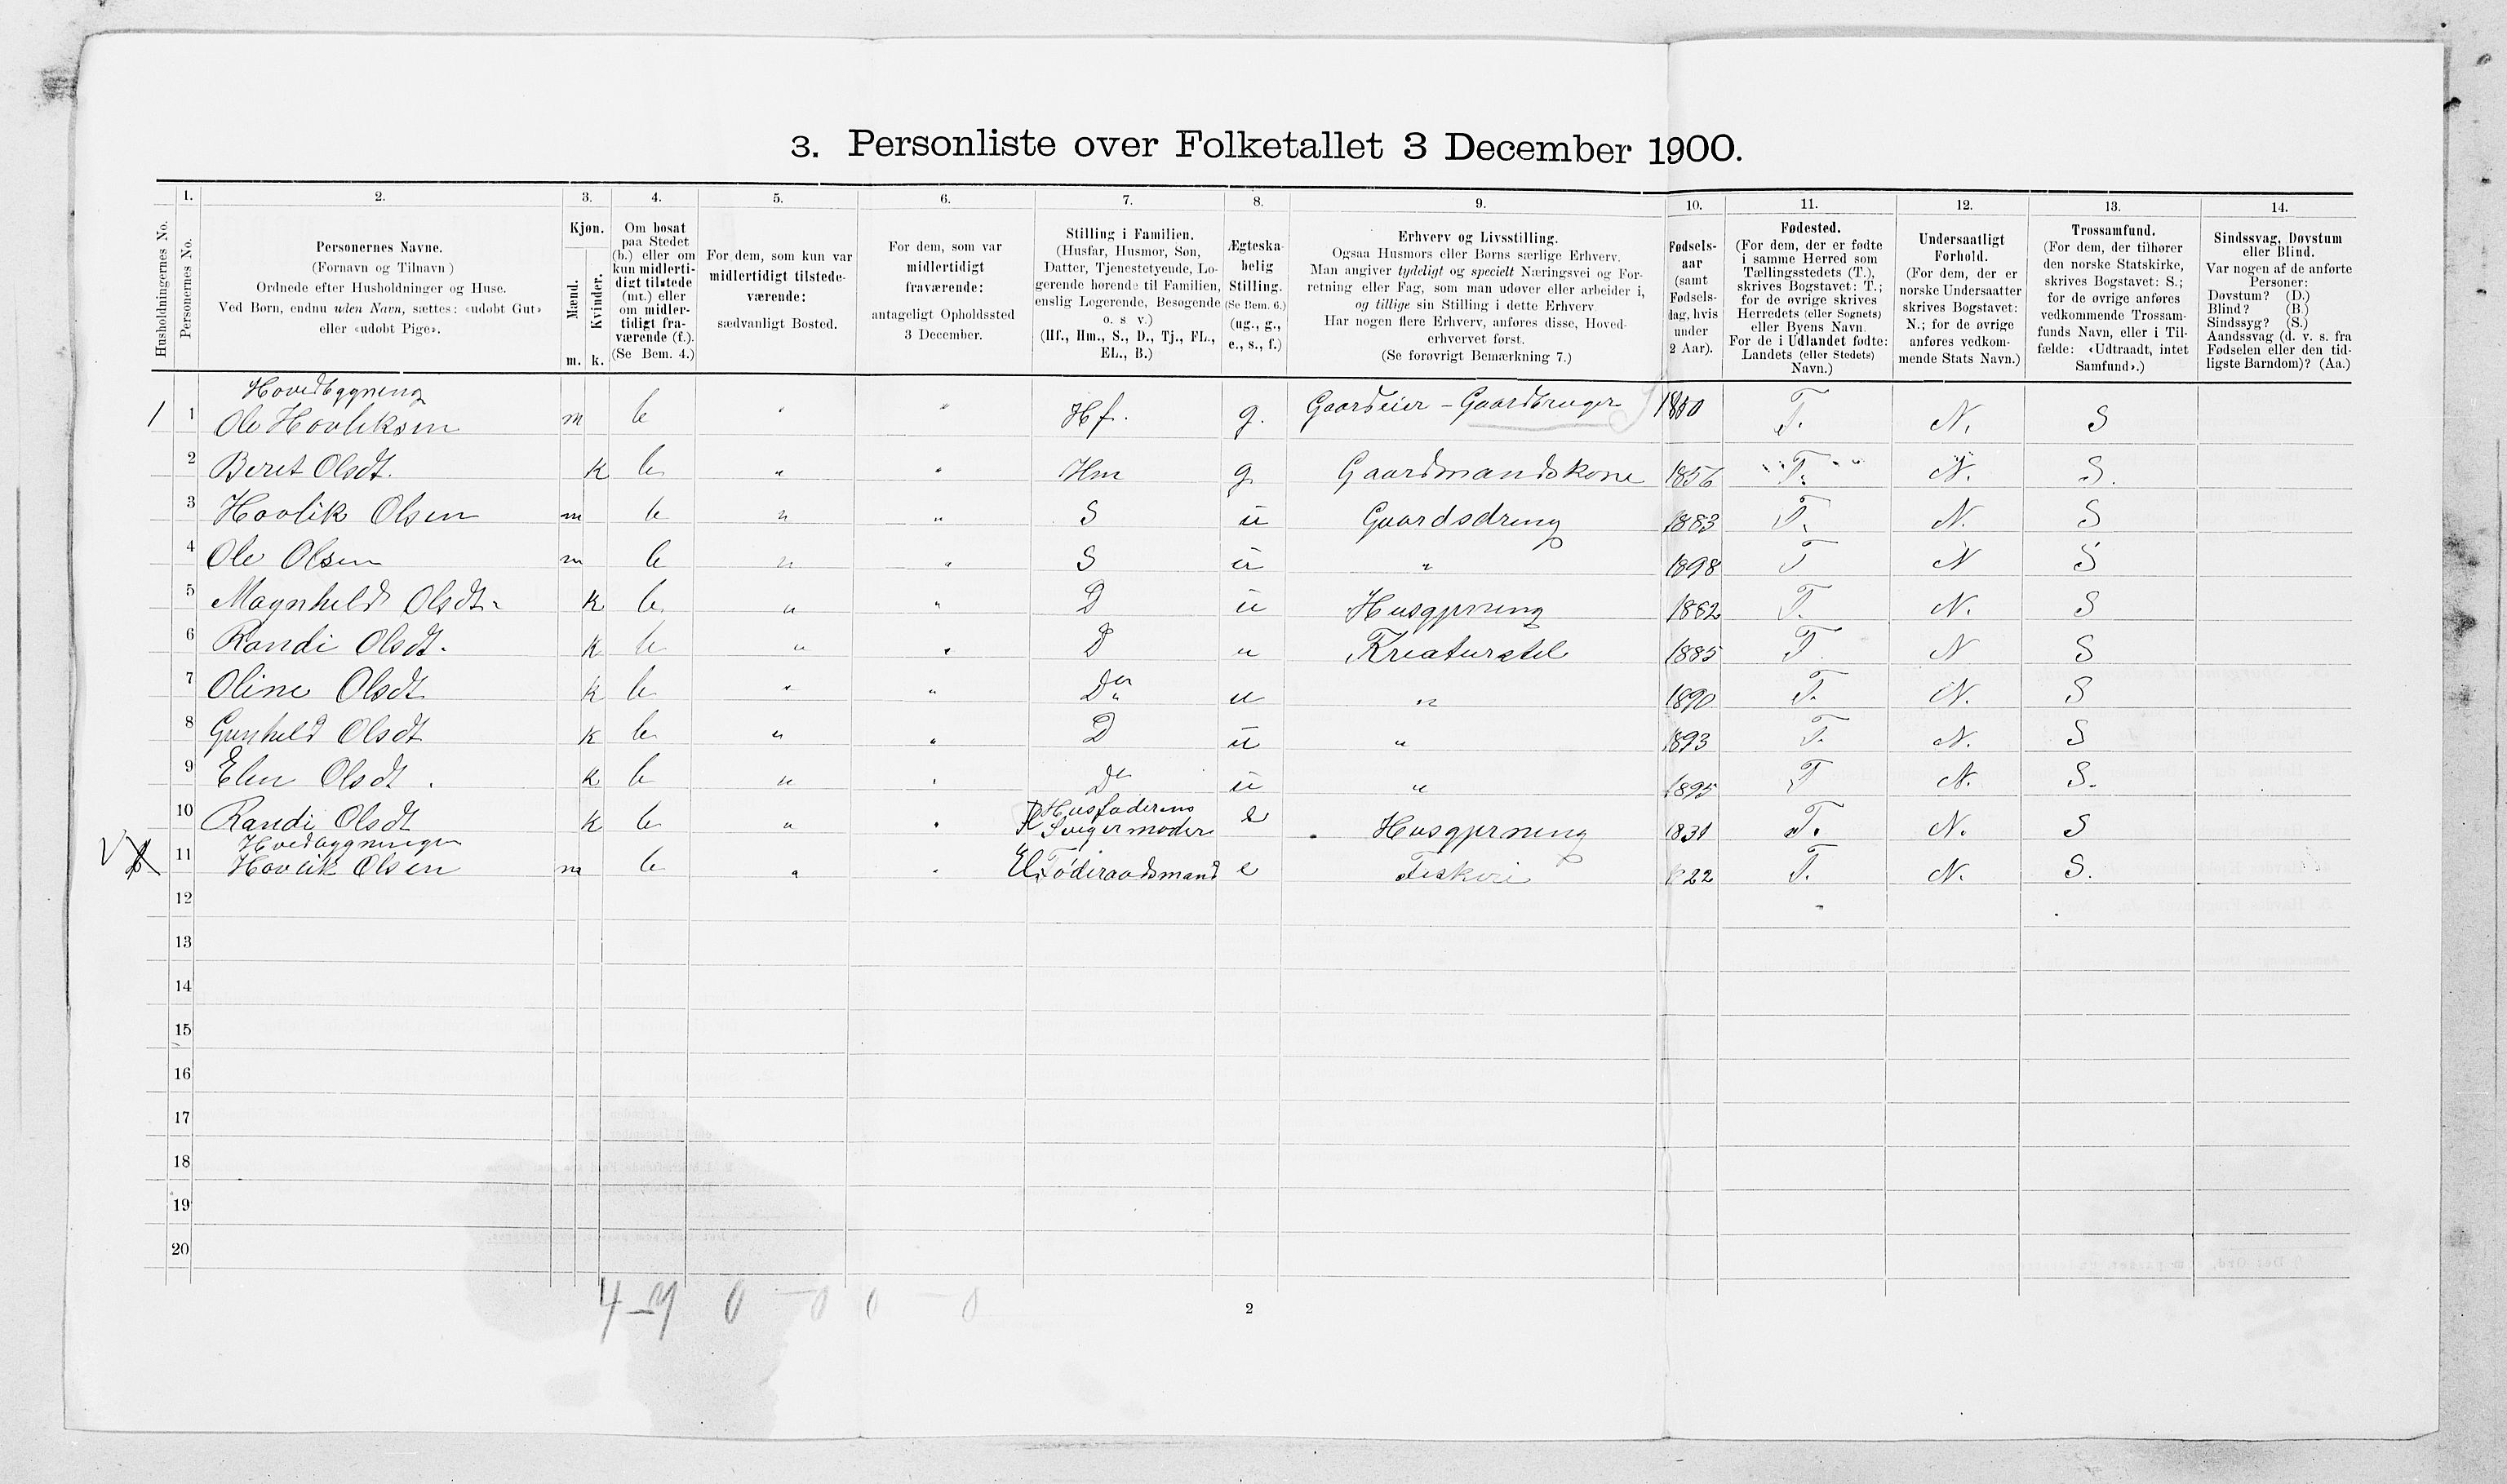 3. Personliste over Folketallet 3 December 1900.
1. 2. 3. 4. 5. 6. 7. 8. 9. 10. 11. 12. 13. 14.
Husholdningernes No.
Personernes No.
Personernes Navne.
(Fornavn og Tilnavn)
Ordnede efter Husholdninger og Huse.
Ved Børn, endnu uden Navn, sættes: «udøbt Gut»
eller «udøbt Pige».
Kjøn.
Mænd.
Kvinder.
m. k.
Om bosat
paa Stedet
(b.) eller om
kun midlerti-
digt tilstede
(mt.) eller
om midler-
tidigt fra-
værende (f.).
(Se Bem. 4.)
For dem, som kun var
midlertidigt tilstede-
værende:
sædvanligt Bosted.
For dem, som var
midlertidigt
fraværende:
antageligt Opholdssted
3 December.
Stilling i Familien.
(Husfar, Husmor, Søn,
Datter, Tjenestetyende, Lo-
gerende hørende til Familien,
enslig Logerende, Besøgende
o. s v.)
(Hf., Hm., S., D., Tj., FL.,
EL., B.)
Ægteska-
belig
Stilling.
(Se Bem. 6.)
(ug., g.,
e., s., f.)
Erhverv og Livsstilling.
Ogsaa Husmors eller Børns særlige Erhverv.
Man angiver tydeligt og specielt Næringsvei og For-
retning eller Fag, som man udøver eller arbeider i,
og tillige sin Stilling i dette Erhverv
Har nogen flere Erhverv, anføres disse, Hoved-
erhvervet først.
(Se forøvrigt Bemærkning 7.)
Fødsels-
aar
(samt
Fødsels-
dag, hvis
under
2 Aar).
Fødested.
(For dem, der er fødte
i samme Herred som
Tællingsstedets (T.),
skrives Bogstavet: T.;
for de øvrige skrives
Herredets (eller Sognets)
eller Byens Navn
For de i Udlandet fødte:
Landets (eller Stedets)
Navn.)
Undersaatligt
Forhold.
(For dem, der er
norske Undersaatter
skrives Bogstavet:
N.; for de øvrige
anføres vedkom-
mende Stats Navn.)
Trossamfund.
(For dem, der tilhører
den norske Statskirke,
skrives Bogstavet: S.;
for de øvrige anføres
vedkommende Trossam-
funds Navn, eller i Til-
fælde: «Udtraadt, intet
Samfund».)
Sindssvag, Døvstum
eller Blind.
Var nogen af de anførte
Personer:
Døvstum? (D.)
Blind? (B.)
Sindssyg? (S.)
Aandssvag (d. v. s. fra
Fødselen eller den tid-
ligste Barndom)? (Aa.)
Hovedbygning
1 1 Ole Hovliksen m b " " Hf. g. Gaardeier - Gaardbruger 1850 T. N. S
2 Beret Olsdt. k b " " Hm g Gaardmandskone 1856 T. N. S.
3 Hovlik Olsen m b " " S u Gaardsdreng 1883 T. N. S
4 Ole Olsen m b " " S u " 1898 T N S
5 Magnhild Olsdt. k b " " D u Husgjerning 1882 T. N. S
6 Randi Olsdt. k b " " D u Kreaturstel 1885 T N S
7 Oline Olsdt k b " " D u " 1890 T. N. S
8 Gunhild Olsdt k b " " D u " 1893 T. N. S
9 Elen Olsdt. k b " " D u " 1895 T N. S.
10 Randi Olsdt k b " " Husfaderens Svigermoder e Husgjerning 1831 T. N. S
Hvedbygningen
11 Hovlik Olsen m b " " El. Føderaadsmand e Fiskeri 1822 T. N. S.
12
13
14
15
16
17
18
19
20
4-9 0 - 0 0 - 0
2